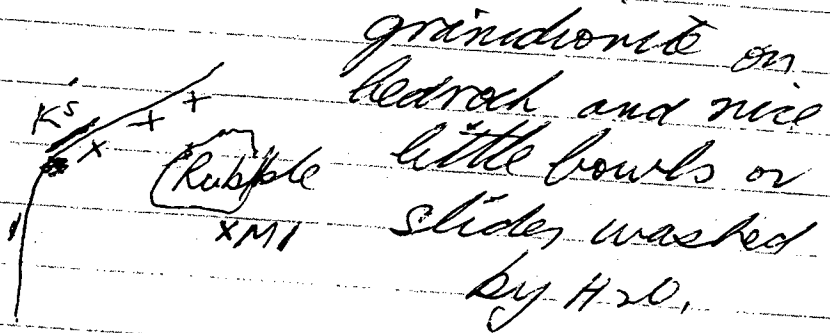 granidiorite on
bedrock and nice
little bowls or
slides washed
by H2O.
Ks
Rubble
XM1